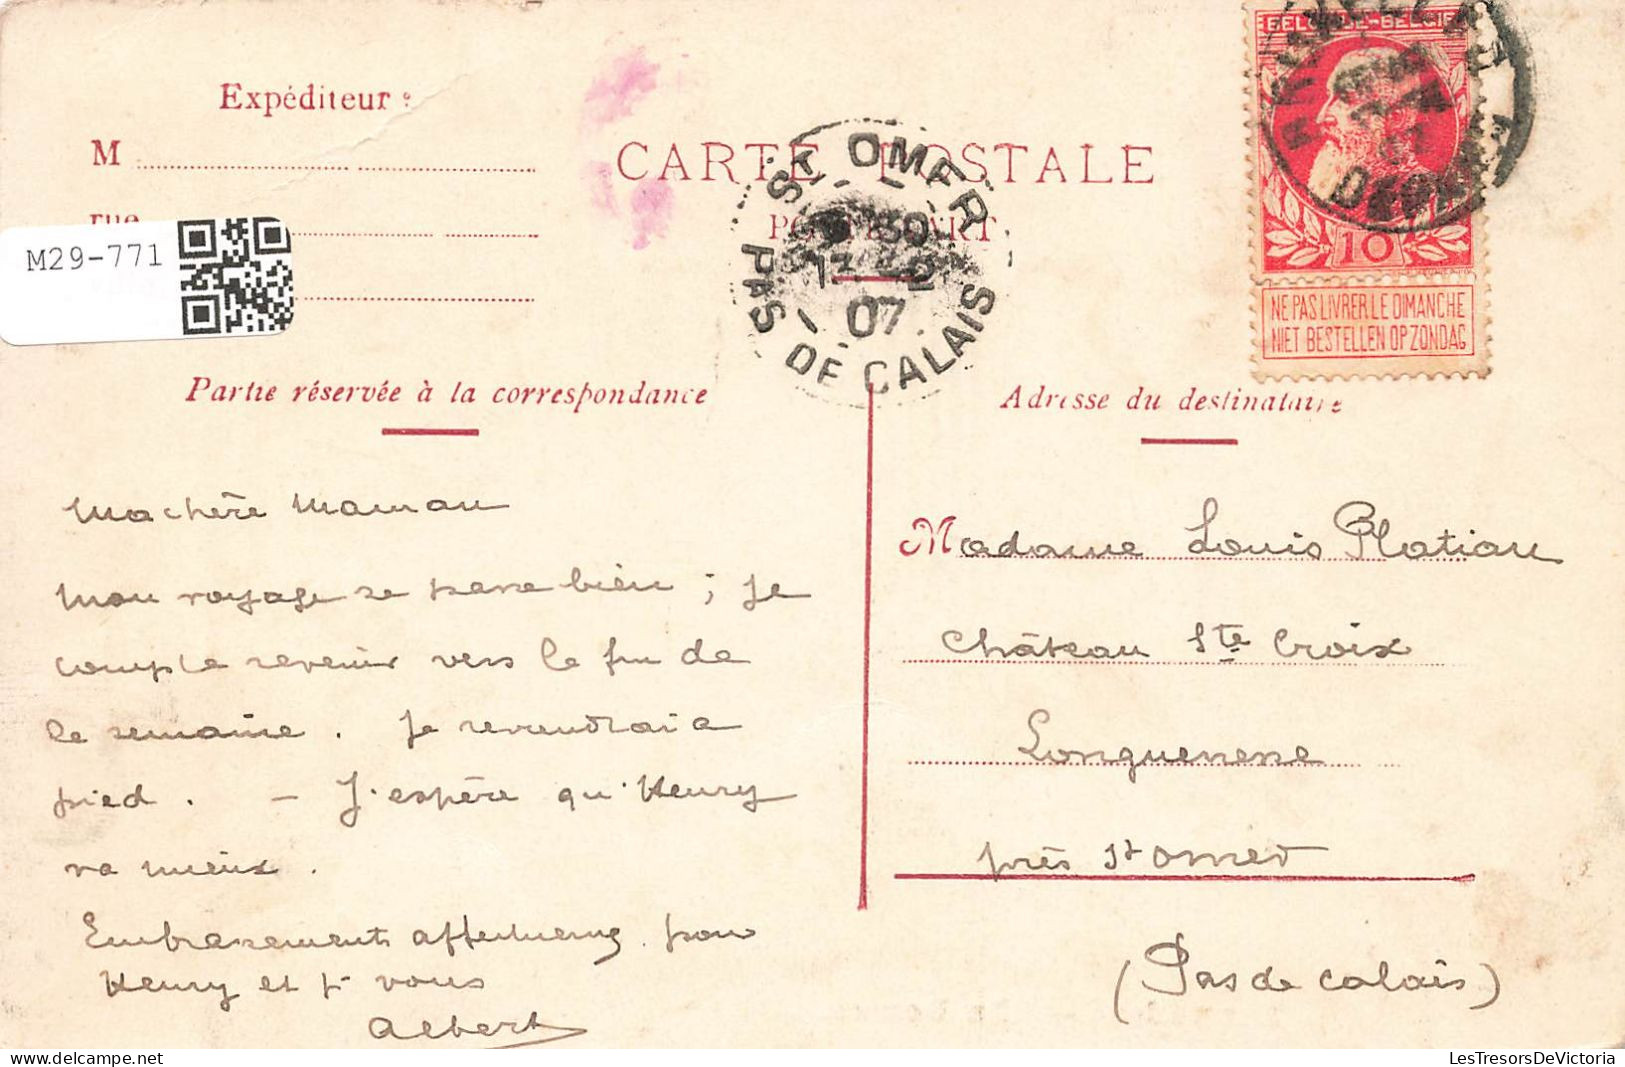 Expéditeur :
M
rue
M29-771
CARTE POSTALE
POSTKAART
ST OMER
30
13
07
PAS DE CALAIS
BELGIQUE-BELGIE
10
NE PAS LIVRER LE DIMANCHE
NIET BESTELLEN OP ZONDAG
Partie réservée à la correspondance
Ma chère Maman
Mon voyage se passe bien ; je
compte revenir vers la fin de
la semaine . Je reviendrai à
pied . — J'espère qu'Henry
va mieux .
Embrassements affectueux pour
Henry et pr vous
Albert
Adresse du destinataire
Madame Louis Platiau
Château Ste Croix
Longuenesse
près St Omer
(Pas de Calais)
LesTresorsDeVictoria